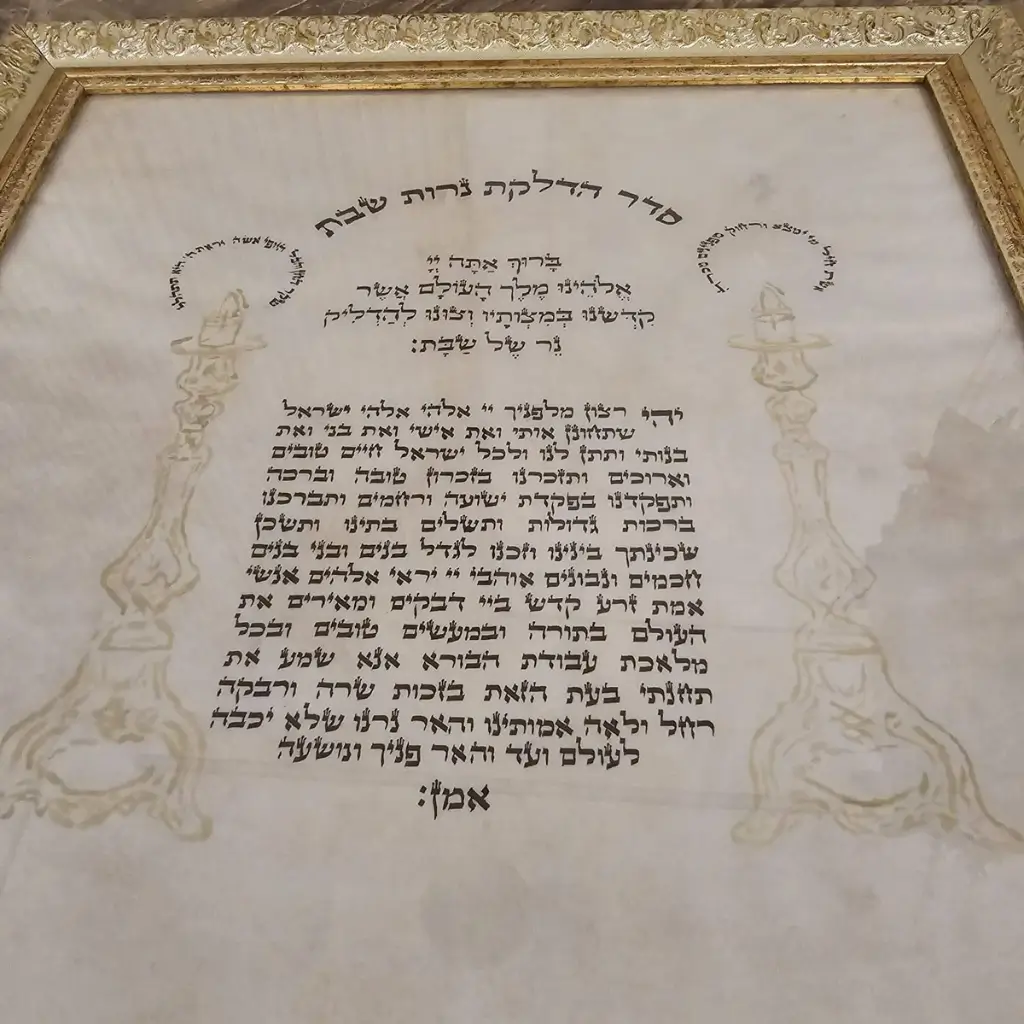 סדר הדלקת נרות שבת
אשת חיל מי ימצא ורחוק מפנינים מכרה
שקר החן והבל היופי אשה יראת ה׳ היא תתהלל
בָּרוּךְ אַתָּה יְיָ
אֱלֹהֵינוּ מֶלֶךְ הָעוֹלָם אֲשֶׁר
קִדְשָׁנוּ בְּמִצְוֹתָיו וְצִוָנוּ לְהַדְלִיק
נֵר שֶׁל שַׁבָּת:
יהי רצון מלפניך יי אלהי אלהי ישראל
שתחונן אותי ואת אישי ואת בני ואת
בנותי ותתן לנו ולכל ישראל חיים טובים
וארוכים ותזכרנו בזכרון טובה וברכה
ותפקדנו בפקדת ישועה ורחמים ותברכנו
ברכות גדולות ותשלים בתינו ותשכן
שכינתך בינינו וזכנו לגדל בנים ובני בנים
חכמים ונבונים אוהבי יי יראי אלהים אנשי
אמת זרע קדש ביי דבקים ומאירים את
העולם בתורה ובמעשים טובים ובכל
מלאכת עבודת הבורא אנא שמע את
תחנתי בעת הזאת בזכות שרה ורבקה
רחל ולאה אמותינו והאר נרנו שלא יכבה
לעולם ועד והאר פניך ונושעה
אמן: